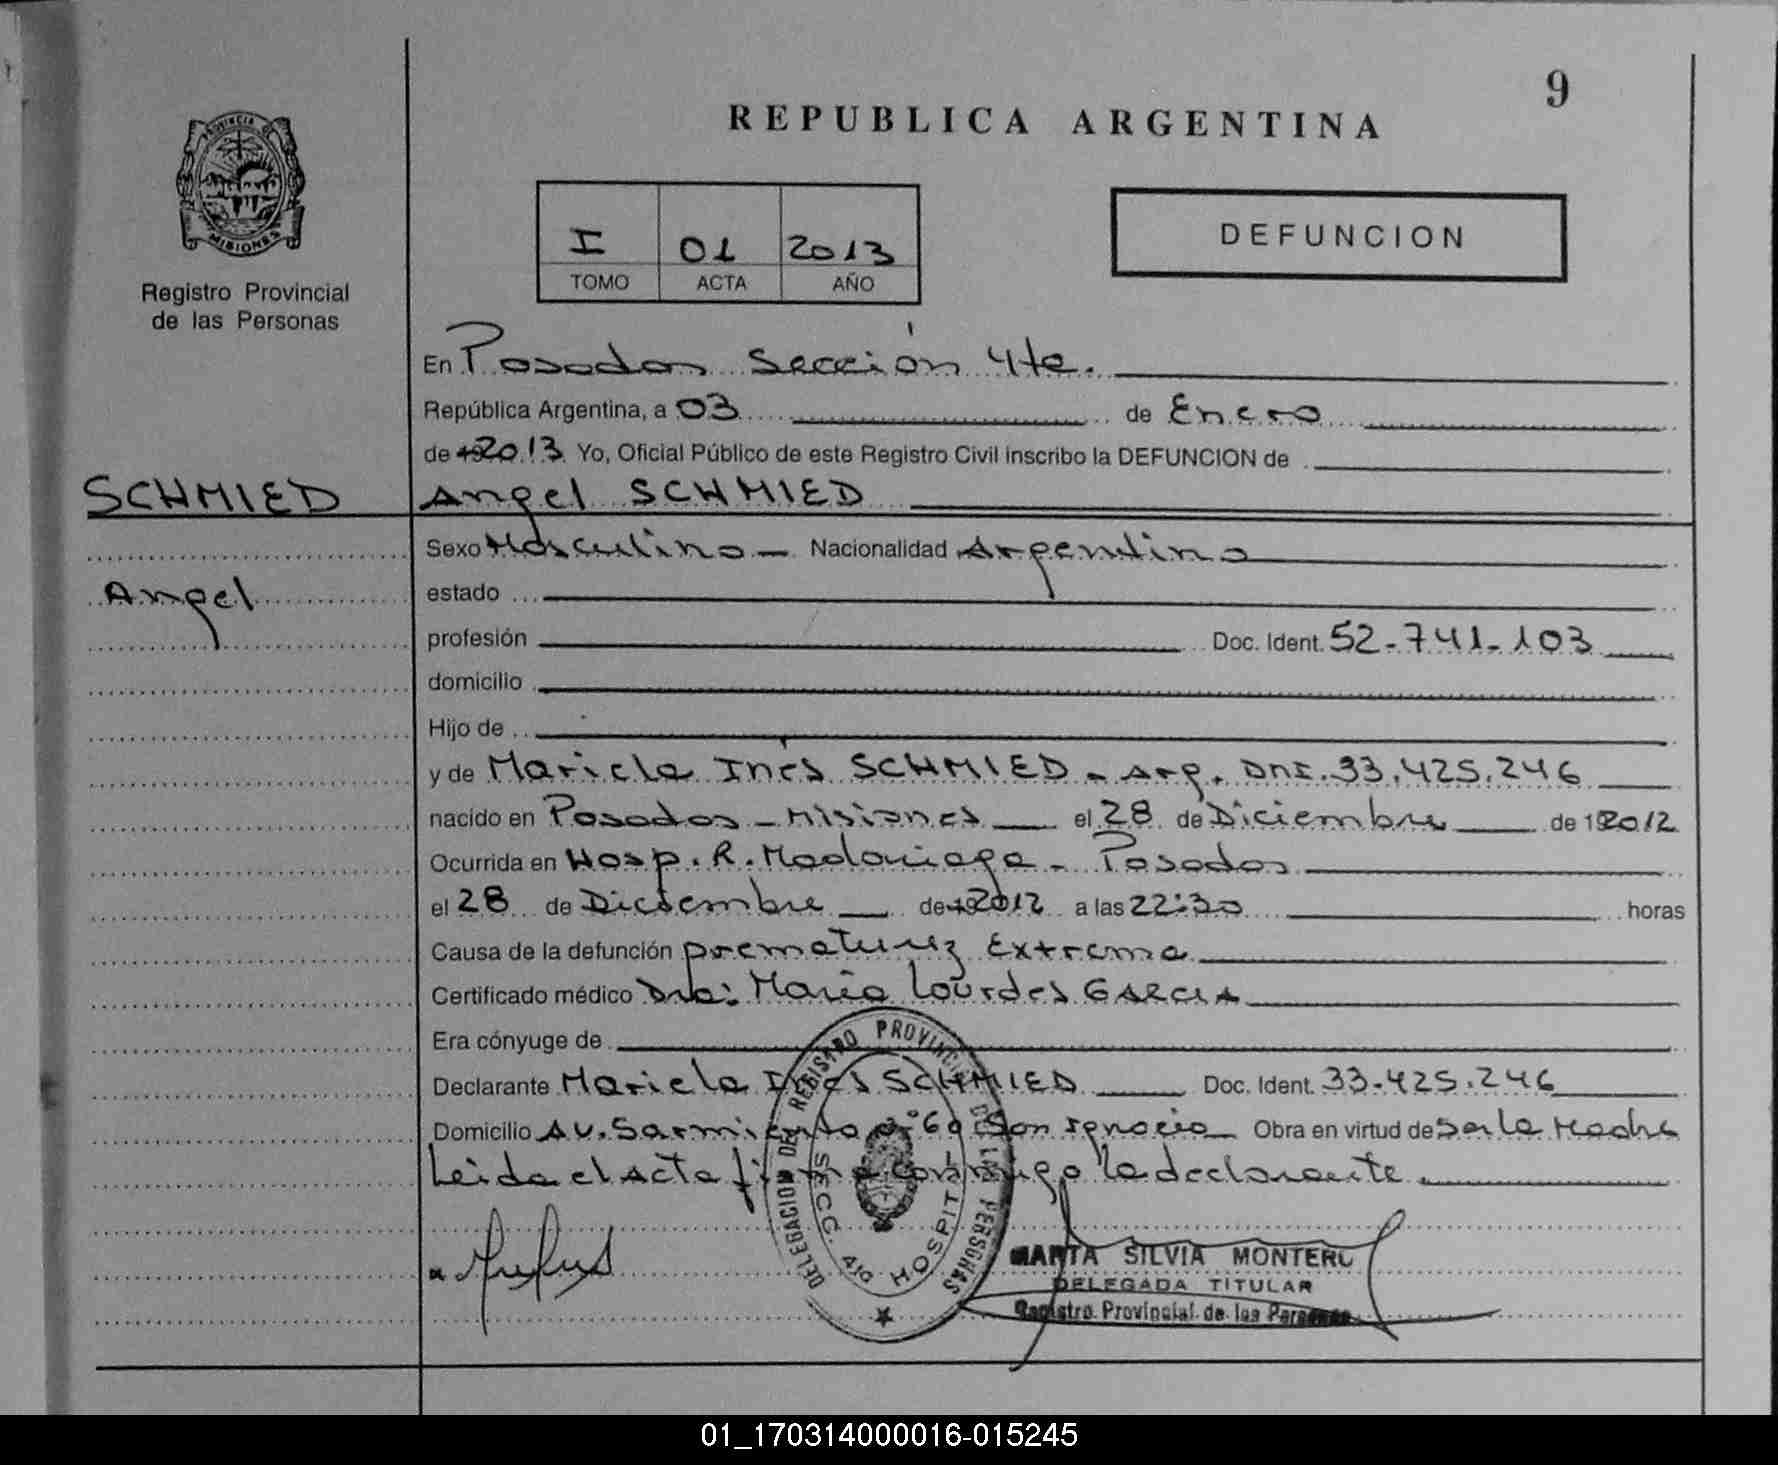 9
REPUBLICA ARGENTINA
PROVINCIA DE
MISIONES
Registro Provincial
de las Personas
I 01 2013
TOMO ACTA AÑO
DEFUNCION
En Posadas Sección 4ta.
República Argentina, a 03 de Enero
de 19 2013 Yo, Oficial Público de este Registro Civil inscribo la DEFUNCION de
SCHMIED
Angel
Angel SCHMIED
Sexo Masculino — Nacionalidad Argentino
estado
profesión Doc. Ident. 52-741-103
domicilio
Hijo de
y de Mariela Inés SCHMIED - Arg. DNI. 33.425.246
nacido en Posadas - Misiones el 28 de Diciembre de 2012
Ocurrida en Hosp. R. Madariaga - Posadas
el 28 de Diciembre de 19 2012 a las 22:30 horas
Causa de la defunción prematurez Extrema
Certificado médico Dra: María Lourdes GARCIA
Era cónyuge de
Declarante Mariela Inés SCHMIED Doc. Ident. 33-425.246
Domicilio Av. Sarmiento n° 60 San Ignacio Obra en virtud de Ser la Madre
Leida el Acta firma conmigo la declarante
DELEGACION DEL REGISTRO PROVINCIAL DE LAS PERSONAS
SECC. 4ta HOSPITAL
MARTA SILVIA MONTERO
DELEGADA TITULAR
Registro Provincial de las Personas
01_170314000016-015245